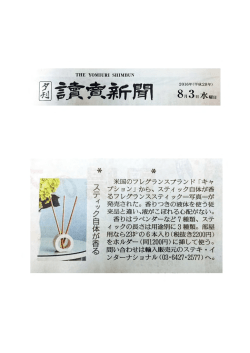 THE YOMIURI SHIMBUN
夕刊
讀賣新聞
2016年(平成28年)
8月3日水曜日
* *
スティック自体が香る
米国のフレグランスブランド「キャ
プション」から、スティック自体が香
るフレグランススティック=写真=が
発売された。香りつきの液体を使う従
来品と違い、液がこぼれる心配がない。
香りはラベンダーなど7種類、ステ
ィックの長さは用途別に3種類。部屋
用なら23㌢の6本入り(税抜き2200円)
をホルダー(同1200円)に挿して使う。
問い合わせは輸入販売元のステキ・イ
ンターナショナル(03・6427・2577)へ。